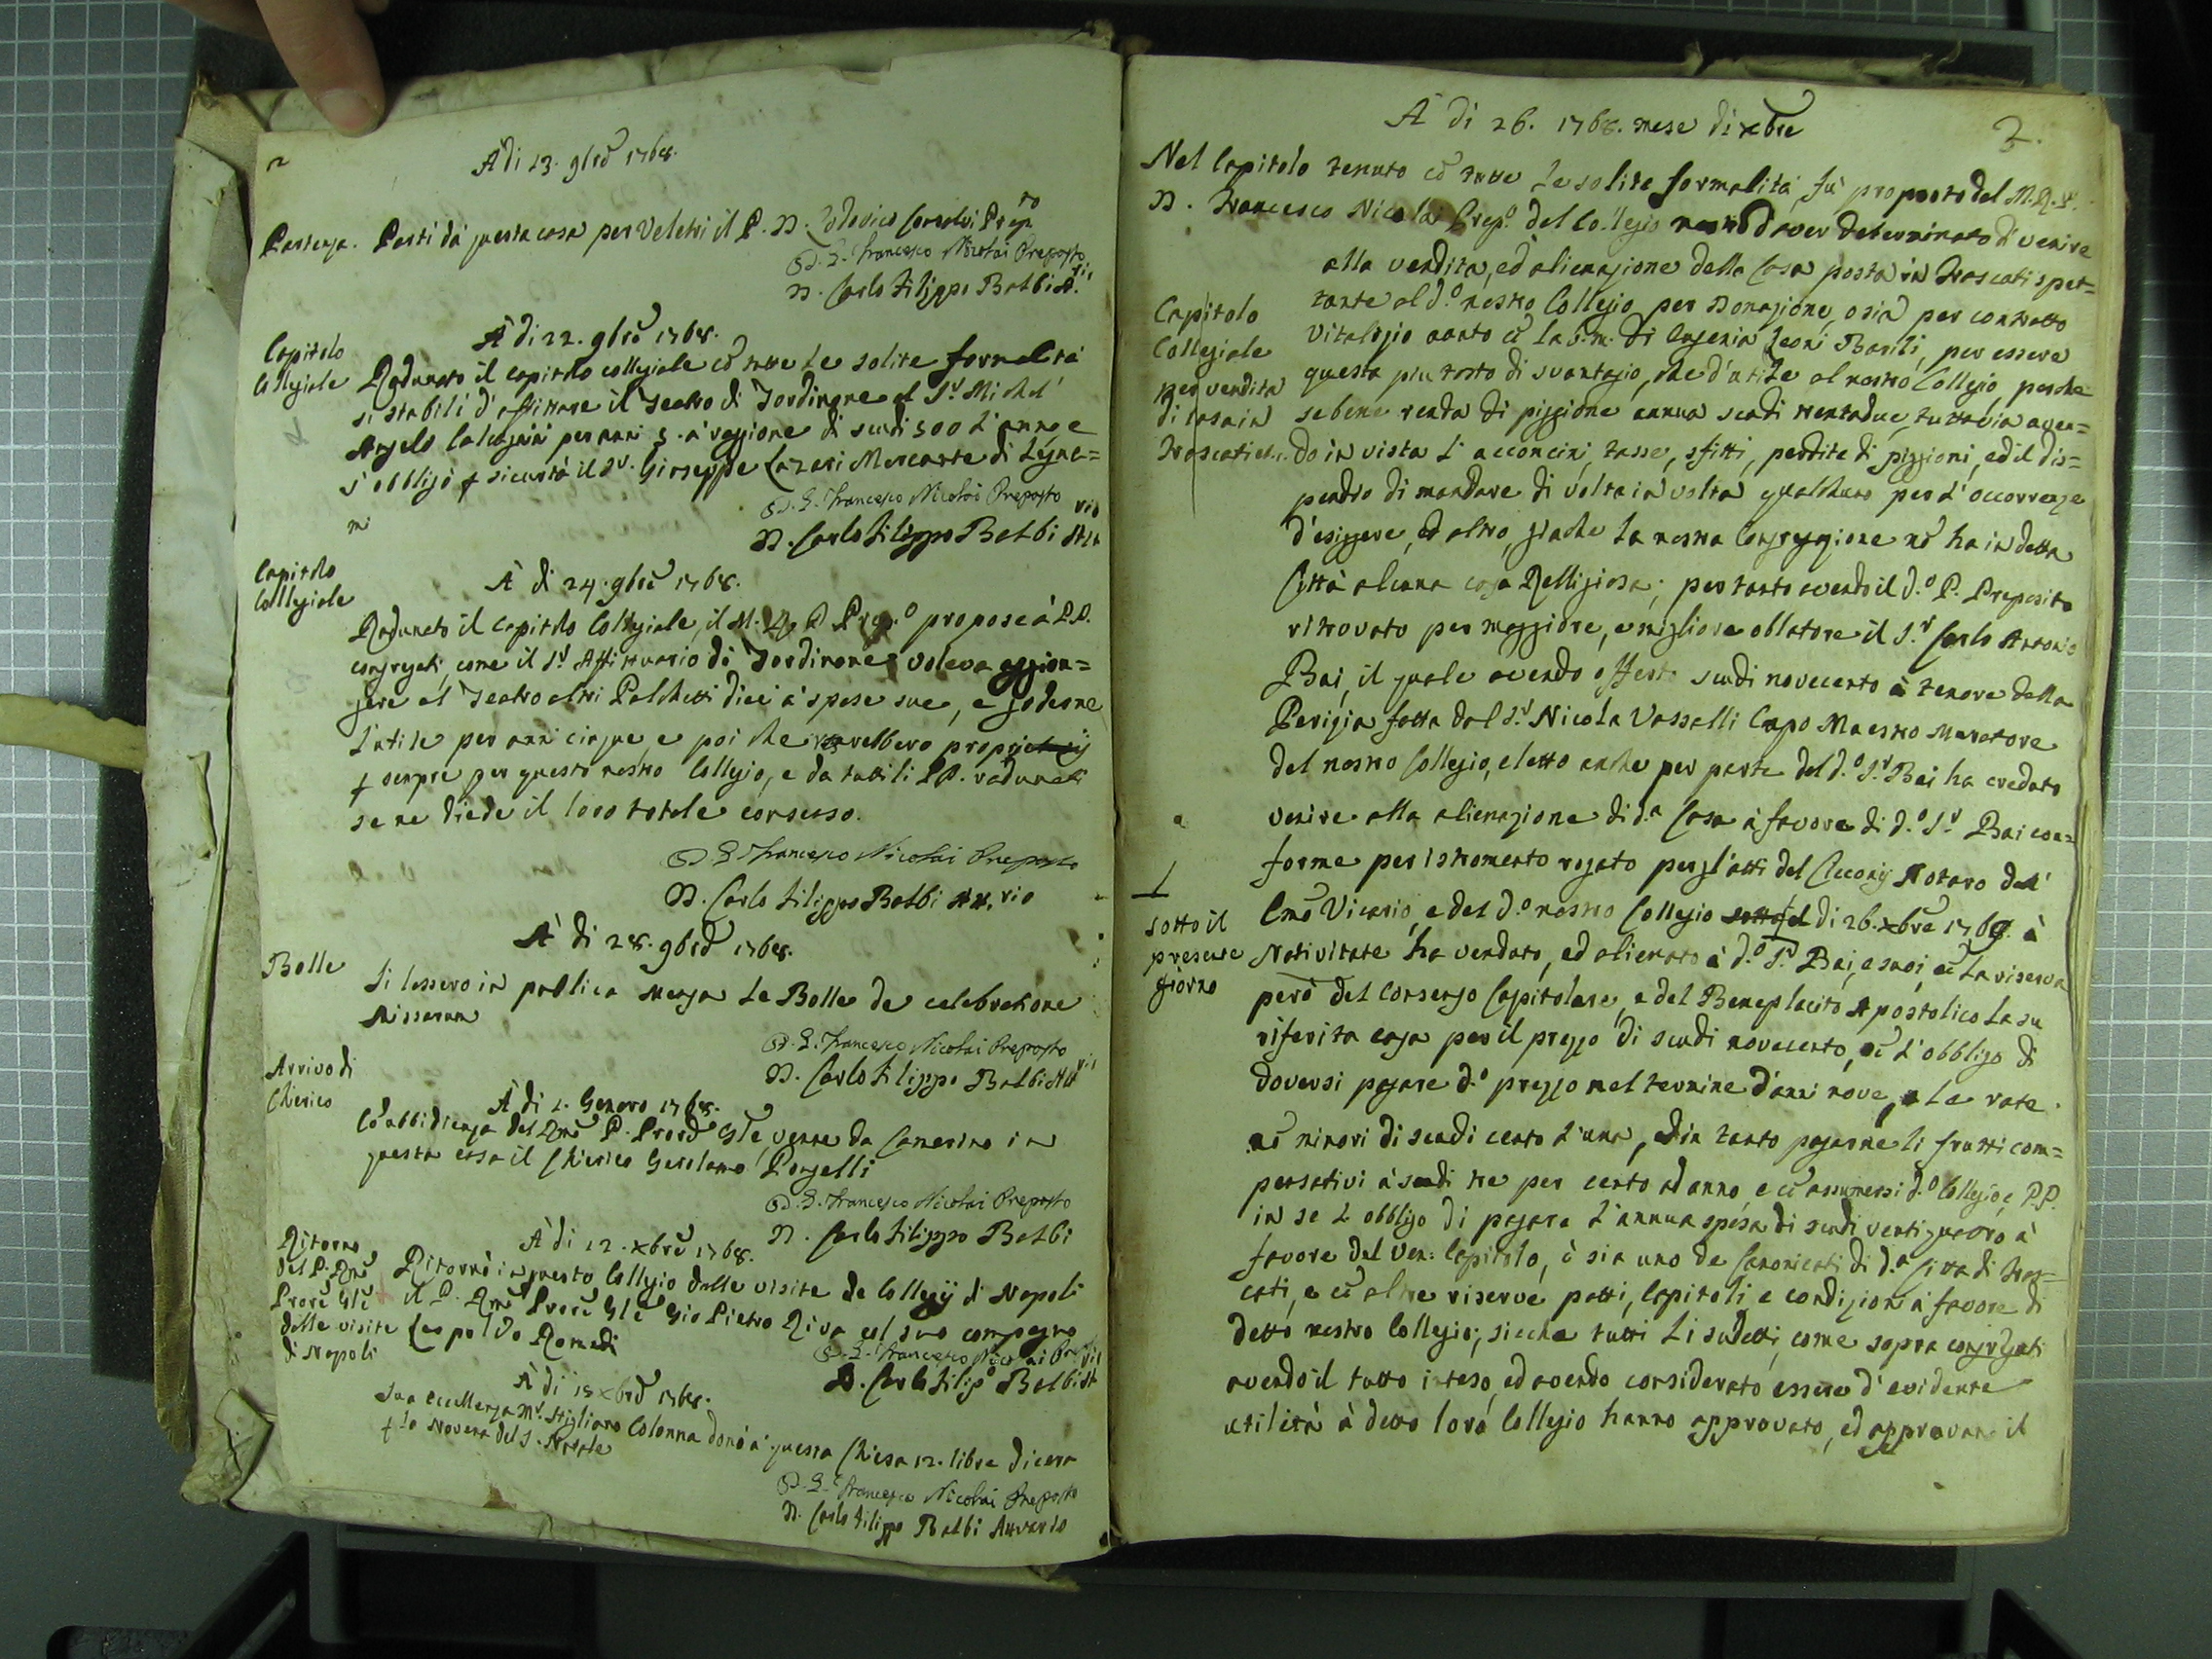 2
A di 13. gbrẽ 1768.
Partenza. Parti dà questa casa per Veletri il P. D. Lodovico Prep.to
D. G. Francesco Nicolai Preposto
D. Carlo Filippo Balbi A.rio
A di 22. gbrẽ 1768.
Capitolo
Collegiale
Radunato il capitolo collegiale cõ tutte le solite formalità
si stabilì d'affittare il Teatro di Tordinone al S.r Michel
Angelo per anni 5. à raggione di scudi 500 l'anno, e
s'obbligò p sicurtà il S.r Giuseppe Lazari Mercante di Legna=
mi
D. G. Francesco Nicolai Preposto
D. Carlo Filippo Balbi Att.rio
Capitolo
Collegiale
A di 24. gbrẽ 1768.
Radunato il Capitolo Collegiale, il M. R. P. Prep.o propose à P.P.
congregati, come il S.r Affittuario di Tordinone voleva aggion=
gere al Teatro altri Palchetti dieci à spese sue, e goderne
l'utile per anni cinque, e poi che sarebbero proprietarij
p sempre per questo nostro Collegio, e da tutti li PP. radunati
se ne diede il loro totale consenso.
D. G. Francesco Nicolai Preposto
D. Carlo Filippo Balbi Att.rio
A di 28. gbrẽ 1768.
Bolle
Si lessero in publica mensa le Bolle de celebratione
Missarum
D. G. Francesco Nicolai Preposto
D. Carlo Filippo Balbi Att.rio
Arrivo di
Chierico
A di 1. Genaro 1768.
Cõ abbidienza del Rmõ P. Prorẽ Glẽ, venne da Camerino in
questa casa il Chierico Gerolamo Ponzelli
D. G. Francesco Nicolai Preposto
D. Carlo Filippo Balbi
Ritorno
del P. Rmõ
Prorẽ Glẽ
dalle visite
di Napoli
A di 12. xbrẽ 1768.
Ritornò in questo Collegio dalle visite de Collegij di Napoli
il P. Rmõ Prorẽ Glẽ Gio Pietro Riva col suo compagno
Leopoldo Romedi
D. G. Francesco Nicolai Prep.
D. Carlo Filip.o Balbi Att.rio
A di 15 xbrẽ 1768.
Sua Eccellenza M.r Stigliano Colonna donò à questa Chiesa 12. libre di cera
p la Novena del S. Natale
D. G. Francesco Nicolai Preposto
D. Carlo Filippo Balbi Attuario
A di 26. 1768. mese di xbrẽ
3.
Nel Capitolo tenuto cõ tutte le solite formalità fù proposto del M. R. P.
D. Francesco Nicolai Prep.o del Collegio nostro d'aver determinato di venire
alla vendita, ed alienazione della Casa posta in Frascati spet=
tante al d.o nostro Collegio per Donazione, o sia per contratto
Capitolo
Collegiale
per vendita
di casa in
Frascati
vitalizio cõ la b.m. di Eugenia Leoni Basili, per essere
questa più tosto di svantagio, che d'utile al nostro Collegio, perche
sebene renda di piggione annua scudi trentadue, tuttavia aven=
do in vista l'acconcini, tasse, sfitti, perdite di piggioni, ed il dis=
pendio di mandare di volta in volta qualcheuno per l'occorrenze
d'esiggere, ed altro, giache la nostra Congregazione nõ ha in detta
Città alcuna casa Relligiosa; per tanto avendo il d.o P. Preposito
ritrovato per maggiore, e migliore oblatore il S.r Carlo Antonio
Bai, il quale avendo offerto scudi novecento à tenore della
Perizia fatta dal S.r Nicola Vassalli Capo Maestro Muratore
del nostro Collegio, eletto anche per parte del d.o S.r Bai ha creduto
venire alla alienazione di d.a Casa à favore di d.o S.r Bai con=
forme per istromento rogato per gl'atti del Cicconij Notaro dell'
Emõ Vicario, e del d.o nostro Collegio sotto il di 26. xbrẽ 1769. à
sotto il
presente
giorno
Nativitate ha venduto, ed alienato à d.o S.r Bai, e suoi, cõ la riserva
però del Consenso Capitolare, e del Beneplacito Apostolico la su
riferita casa per il prezzo di scudi novecento, cõ l'obbligo di
doversi pagare d.o prezzo nel termine d'anni nove, e le rate
nõ minori di scudi cento l'una, ed in tanto pagarne li frutti com=
pensativi à scudi tre per cento ad anno, e cõ assumersi d.o Collegio e P.P.
in se l'obbligo di pagare l'annua spesa di scudi ventiquattro à
favore del Ven: Capitolo, ò sia uno de Canonicati di d.a Città di Fras=
cati, e cõ altre riserve patti, Capitoli e condizioni à favore di
detto nostro Collegio; sicche tutti li sudetti, come sopra congregati
avendo il tutto inteso, ed avendo considerato essere d'evidente
utilità à detto loro Collegio hanno approvato, ed approvano il